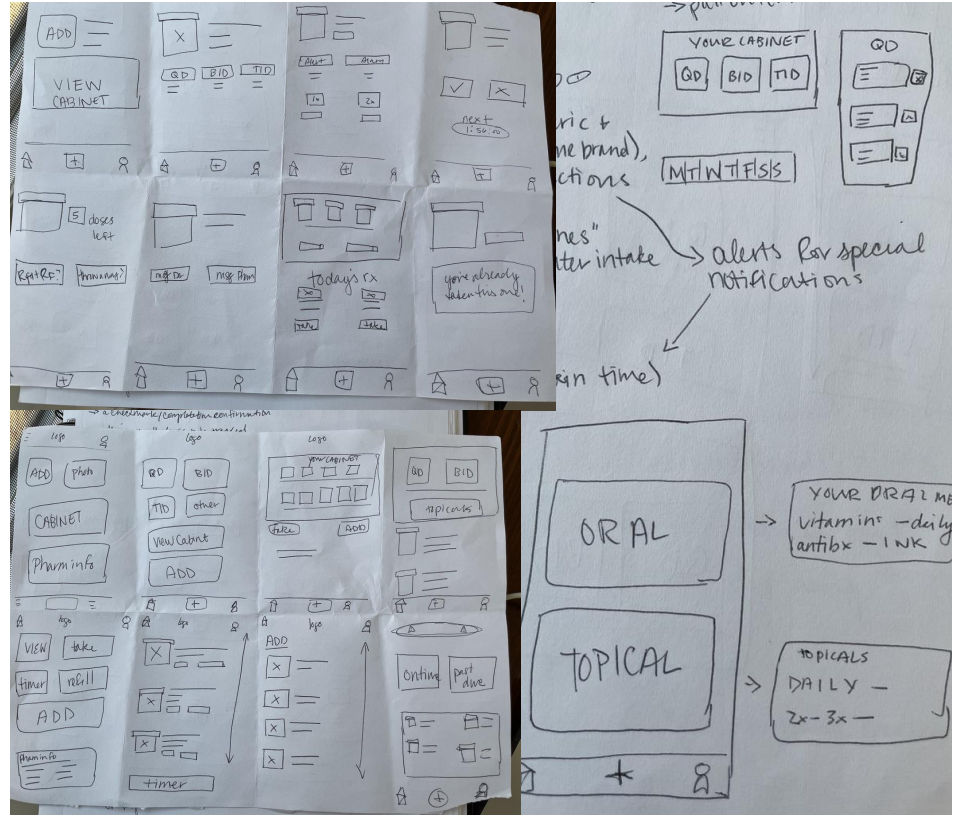 ADD
VIEW
CABINET
X
QD BID TID
Alert Alarm
1x 2x
✓ X
next
1:56:00
+ + + +
5 doses
left
Rqst RF? throw away?
msg Dr msg Pharm
today's rx
take take
you've already
taken this one!
+ + + +
YOUR CABINET
QD BID TID
M T W T F S S
QD
ric +
me brand),
ctions
nes"
ter intake
alerts for special
notifications
in time)
→ a checkmark/completion confirmation
logo
ADD photo
CABINET
Pharm info
logo
QD BID
TID other
View Cabint
ADD
+
logo
YOUR CABINET
take ADD
+
QD BID
topicals
+
logo
VIEW take
timer refill
ADD
Pharm info
logo
X
X
X
timer
logo
ADD
X
X
X
X
ontime past
due
+
ORAL
TOPICAL
+
→ YOUR ORAL ME
vitamins - daily
antibx - 1 NK
→ TOPICALS
DAILY —
2x-3x —